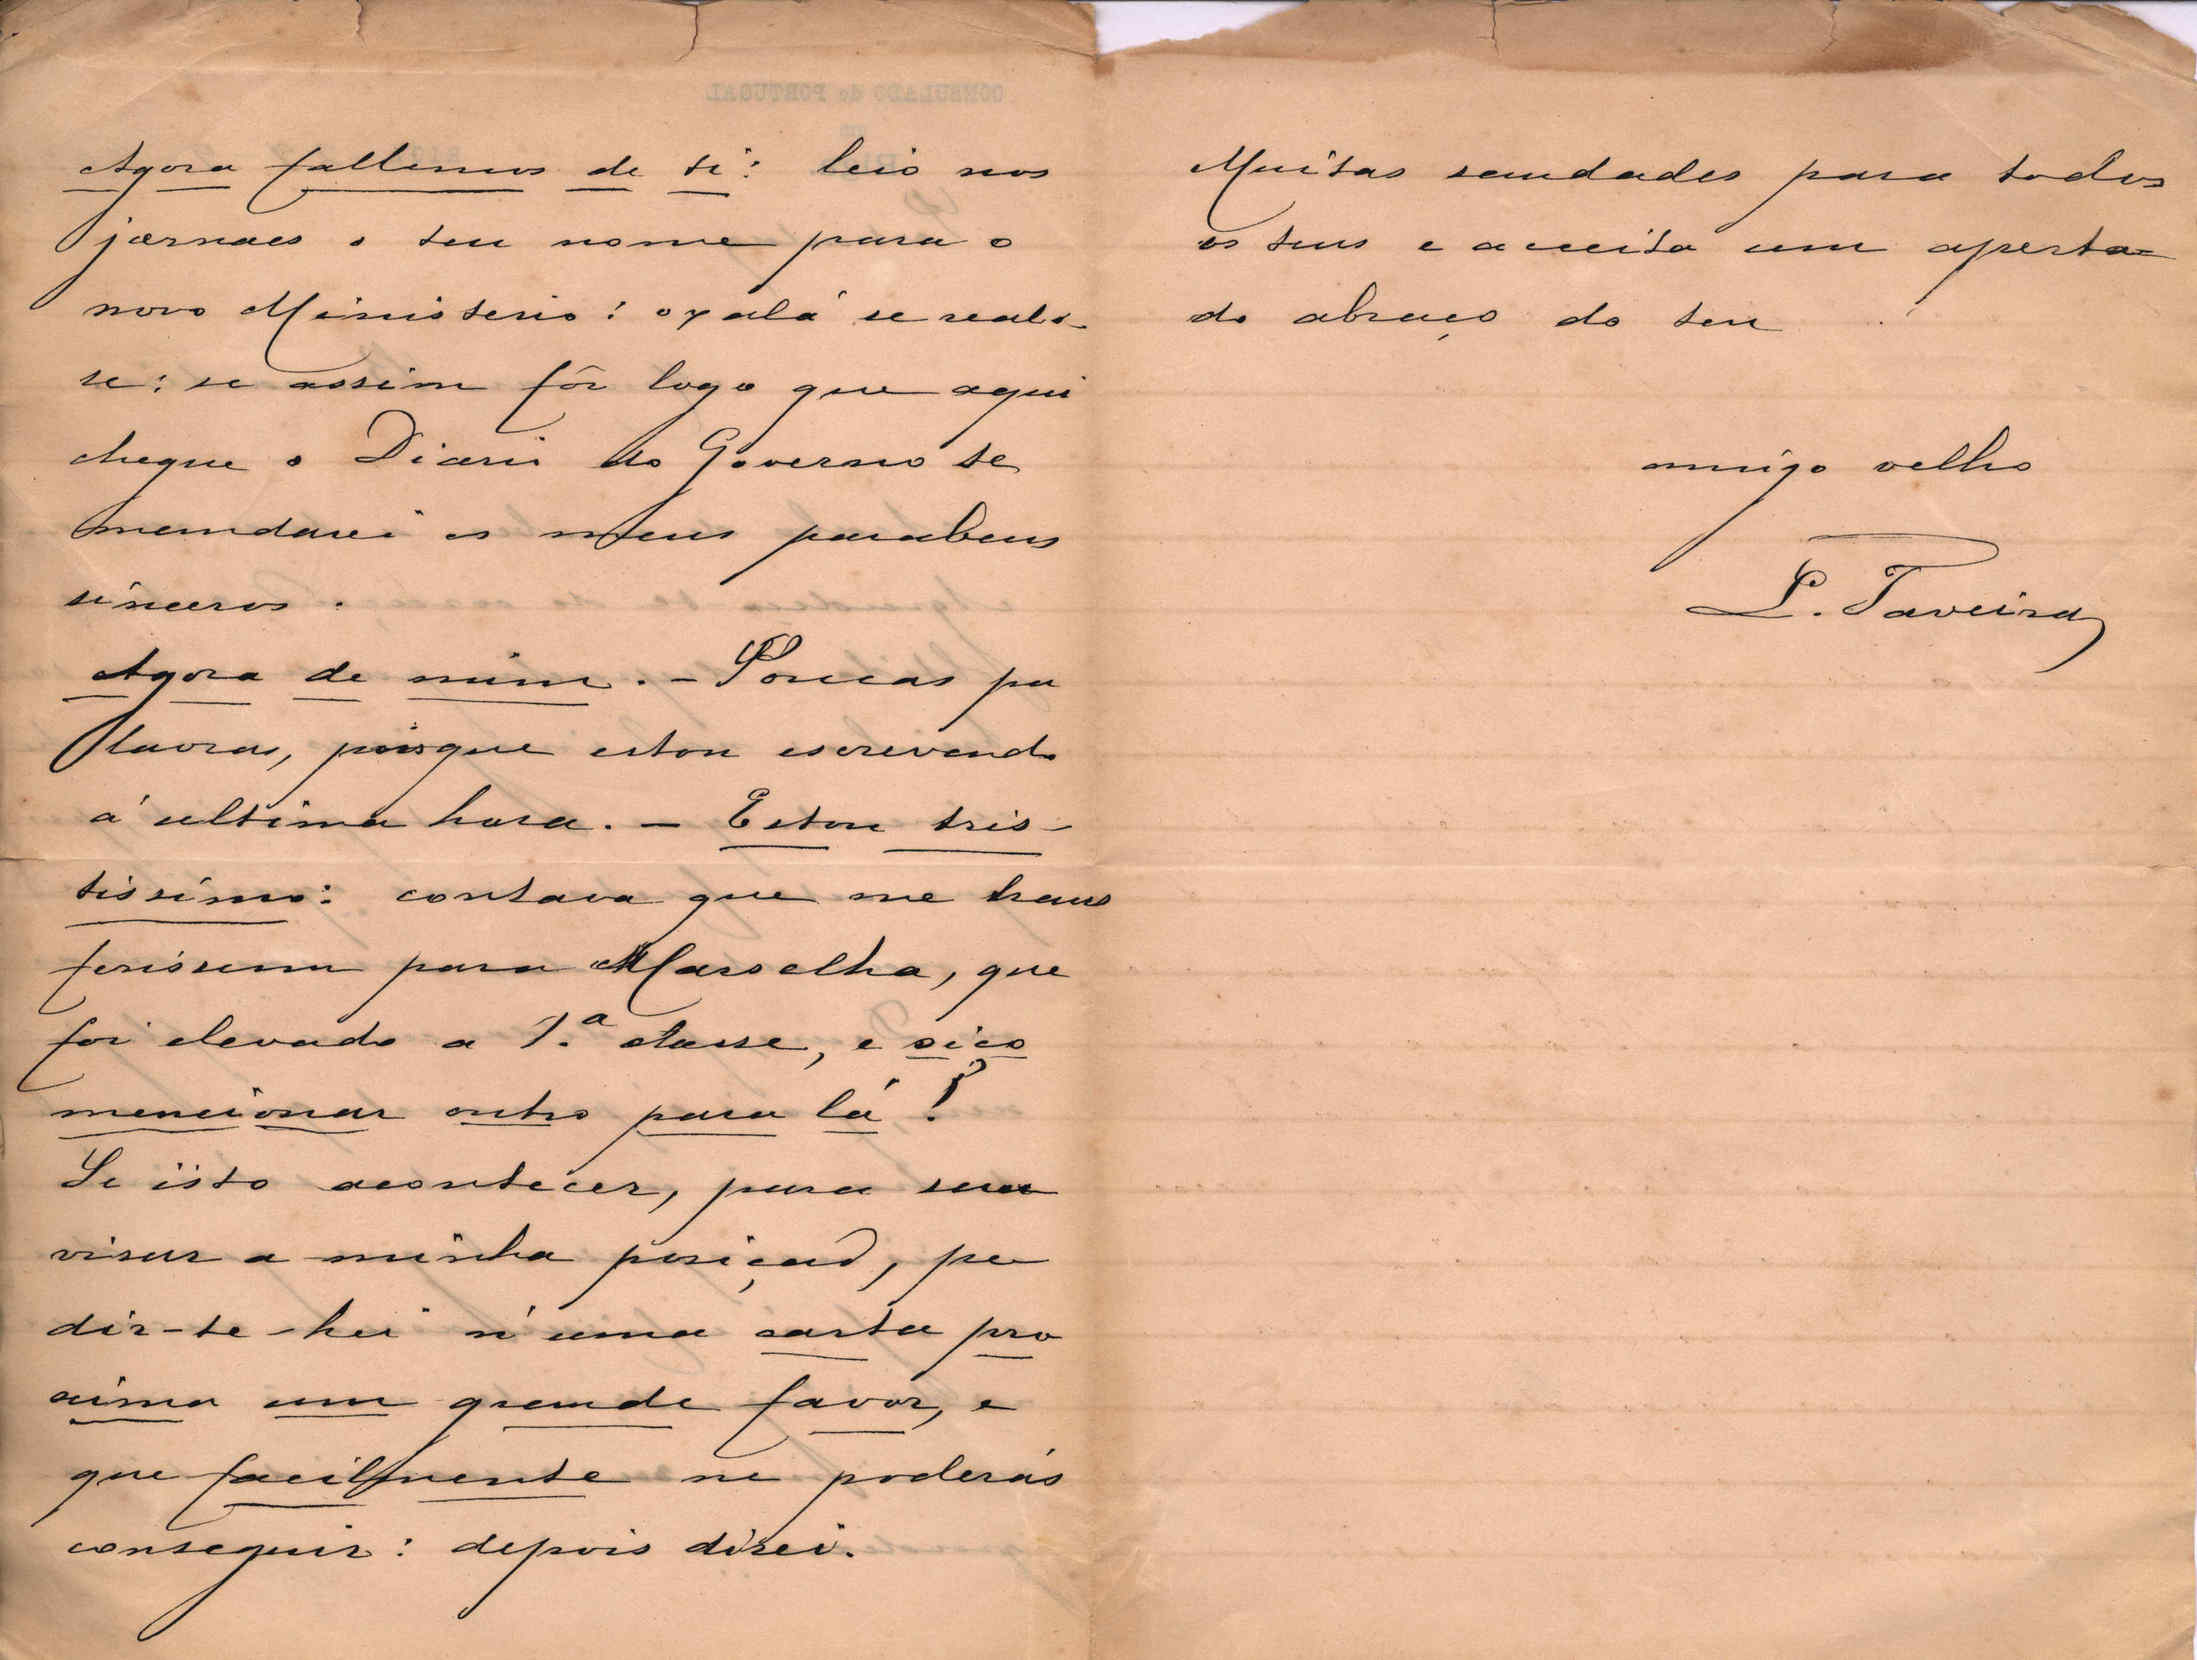 Agora fallemos de ti: leio nos
jornaes o teu nome para o
novo Ministerio: oxalá se reali-
se: se assim fôr logo que aqui
chegue o Diario do Governo te
mandarei os meus parabens
sinceros.
Agora de mim. - Poucas pa
lavras, porque estou escrevendo
á ultima hora. - Estou tris-
tissimo: contava que me trans
ferissem para Marselha, que
foi elevado a 1.ª classe, e ouço
mencionar outro para lá!
Se isto acontecer, para sua
visar a minha posição, pe
dir-te-hei n'uma carta pro
xima um grande favor, e
que facilmente me poderás
conseguir: depois direi.
Muitas saudades para todos
os teus e acceita um aperta-
do abraço do teu
amigo velho
L. Taveira
CONSULADO de PORTUGAL